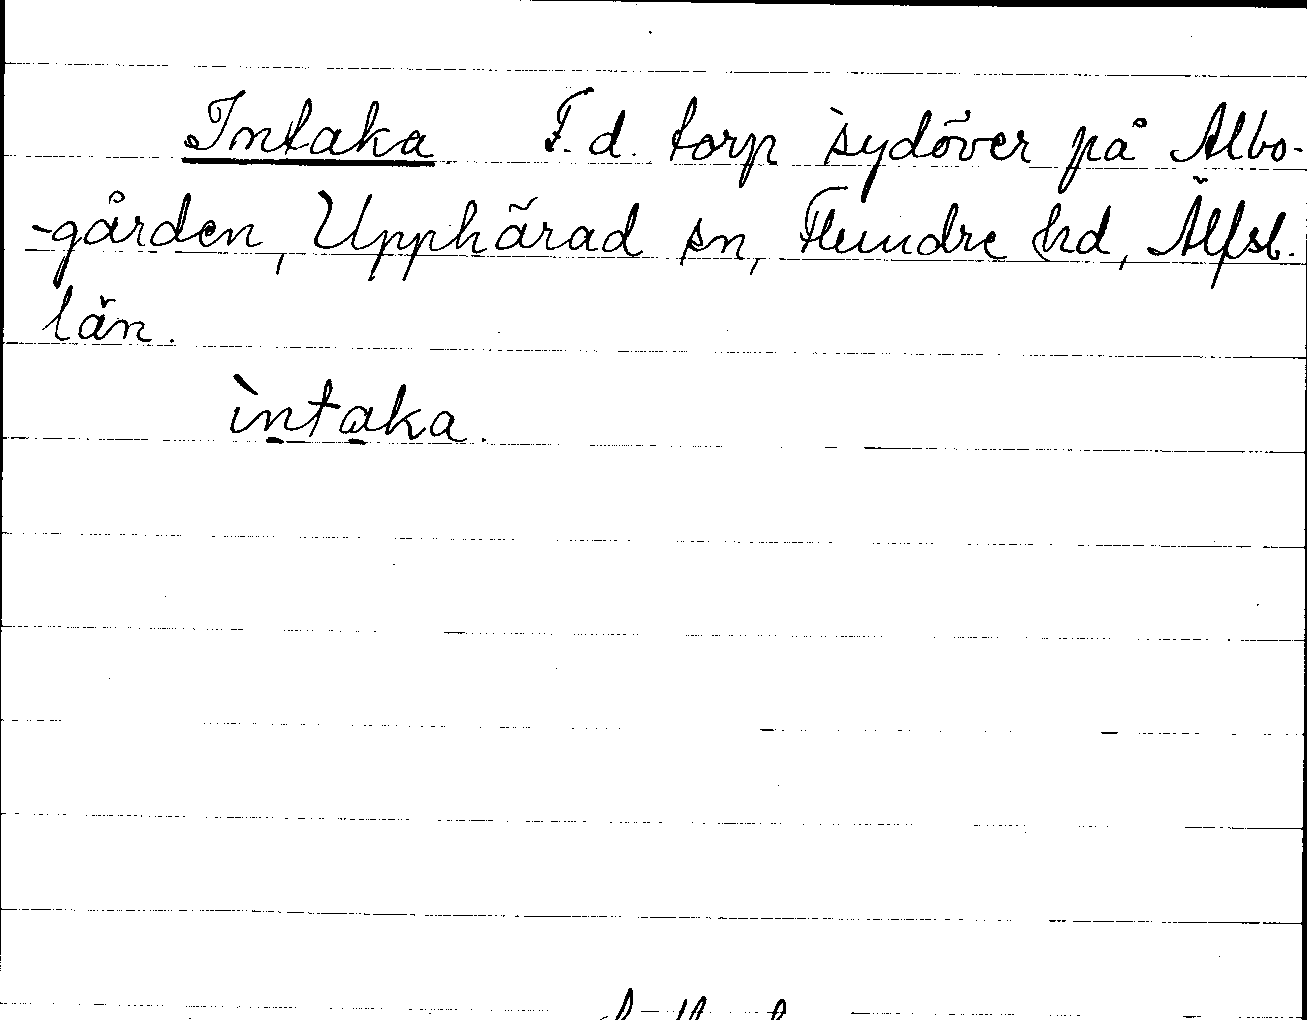 Intaka. F.d. torp sydöver på Albo-
-gården, Upphärad sn, Flundre hd, Älfsb.
län.
ìntaka.